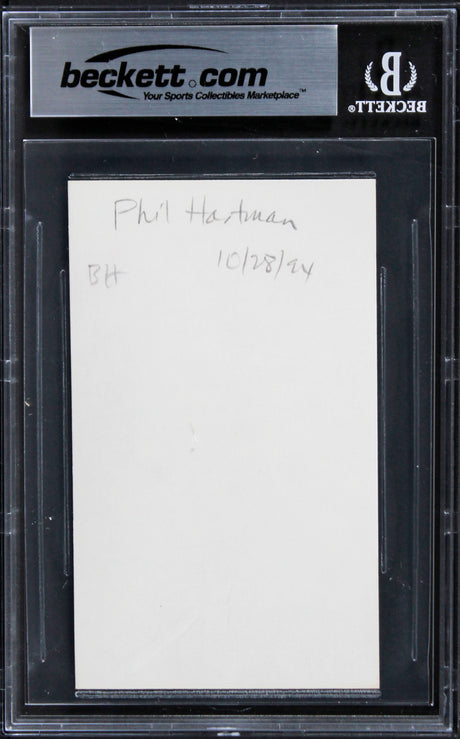 beckett.com
Your Sports Collectibles Marketplace™
B
BECKETT®
Phil Hartman
10/28/94
BH